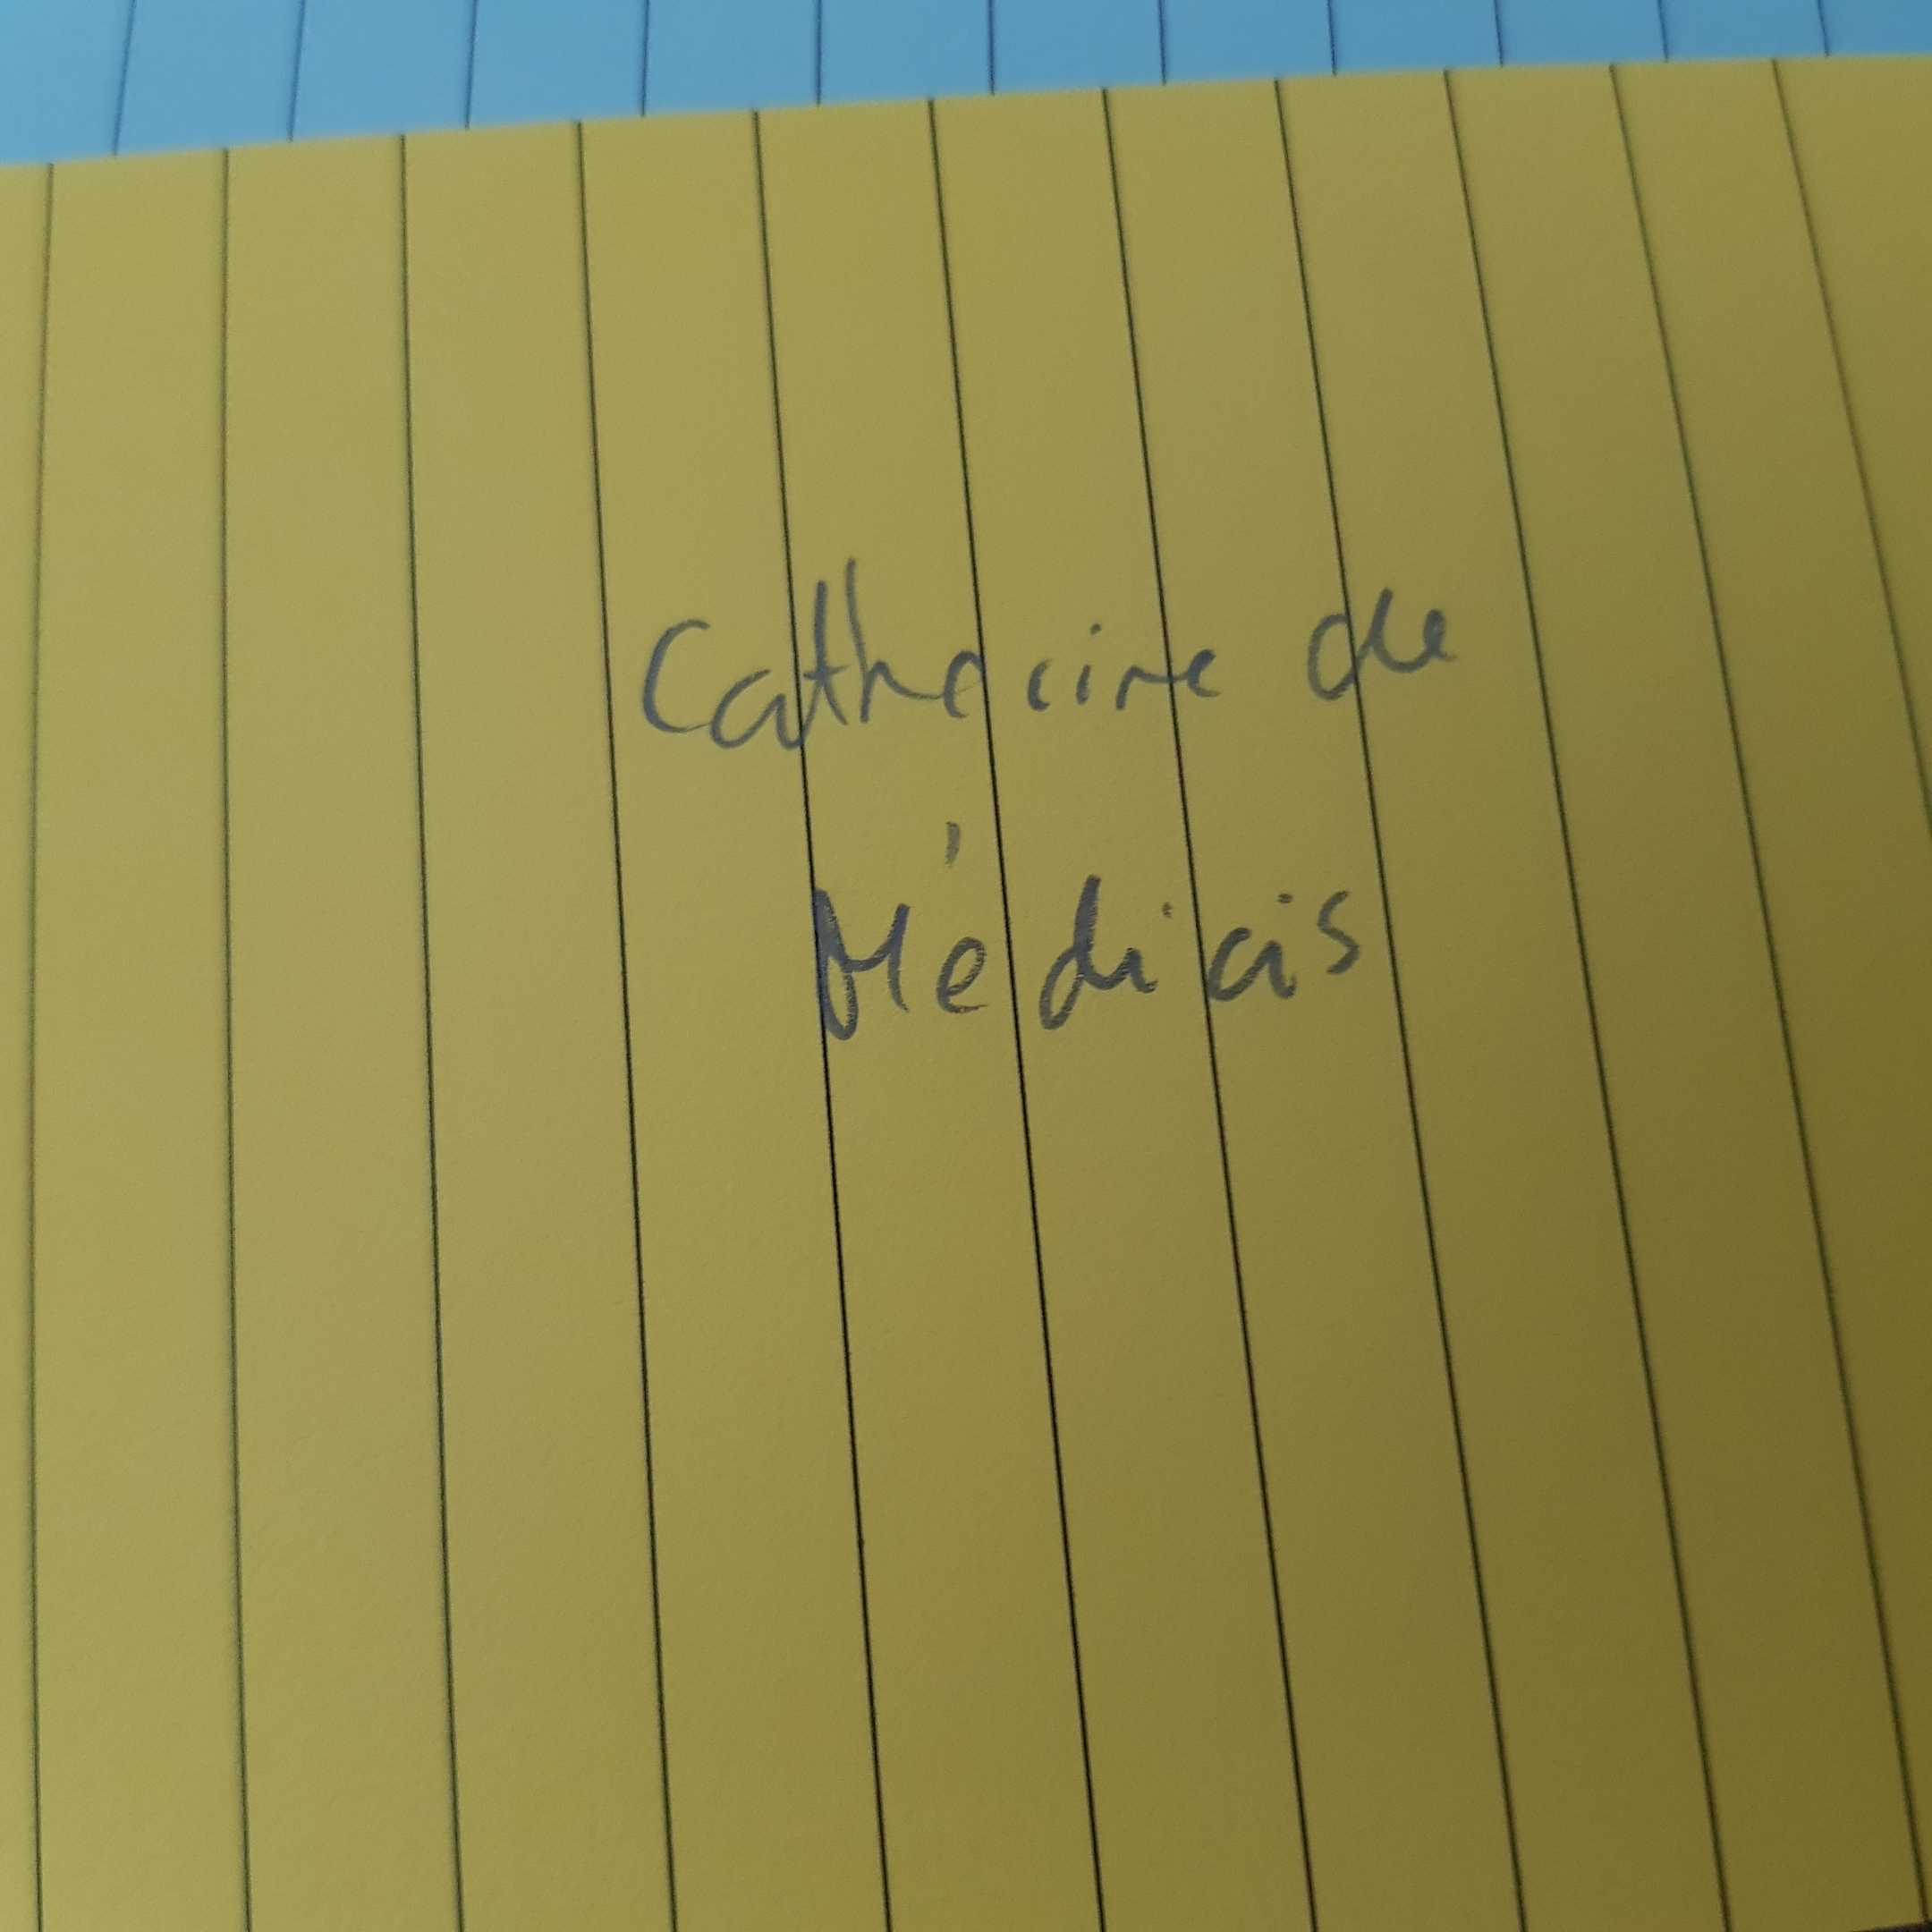 Catherine de
Médicis